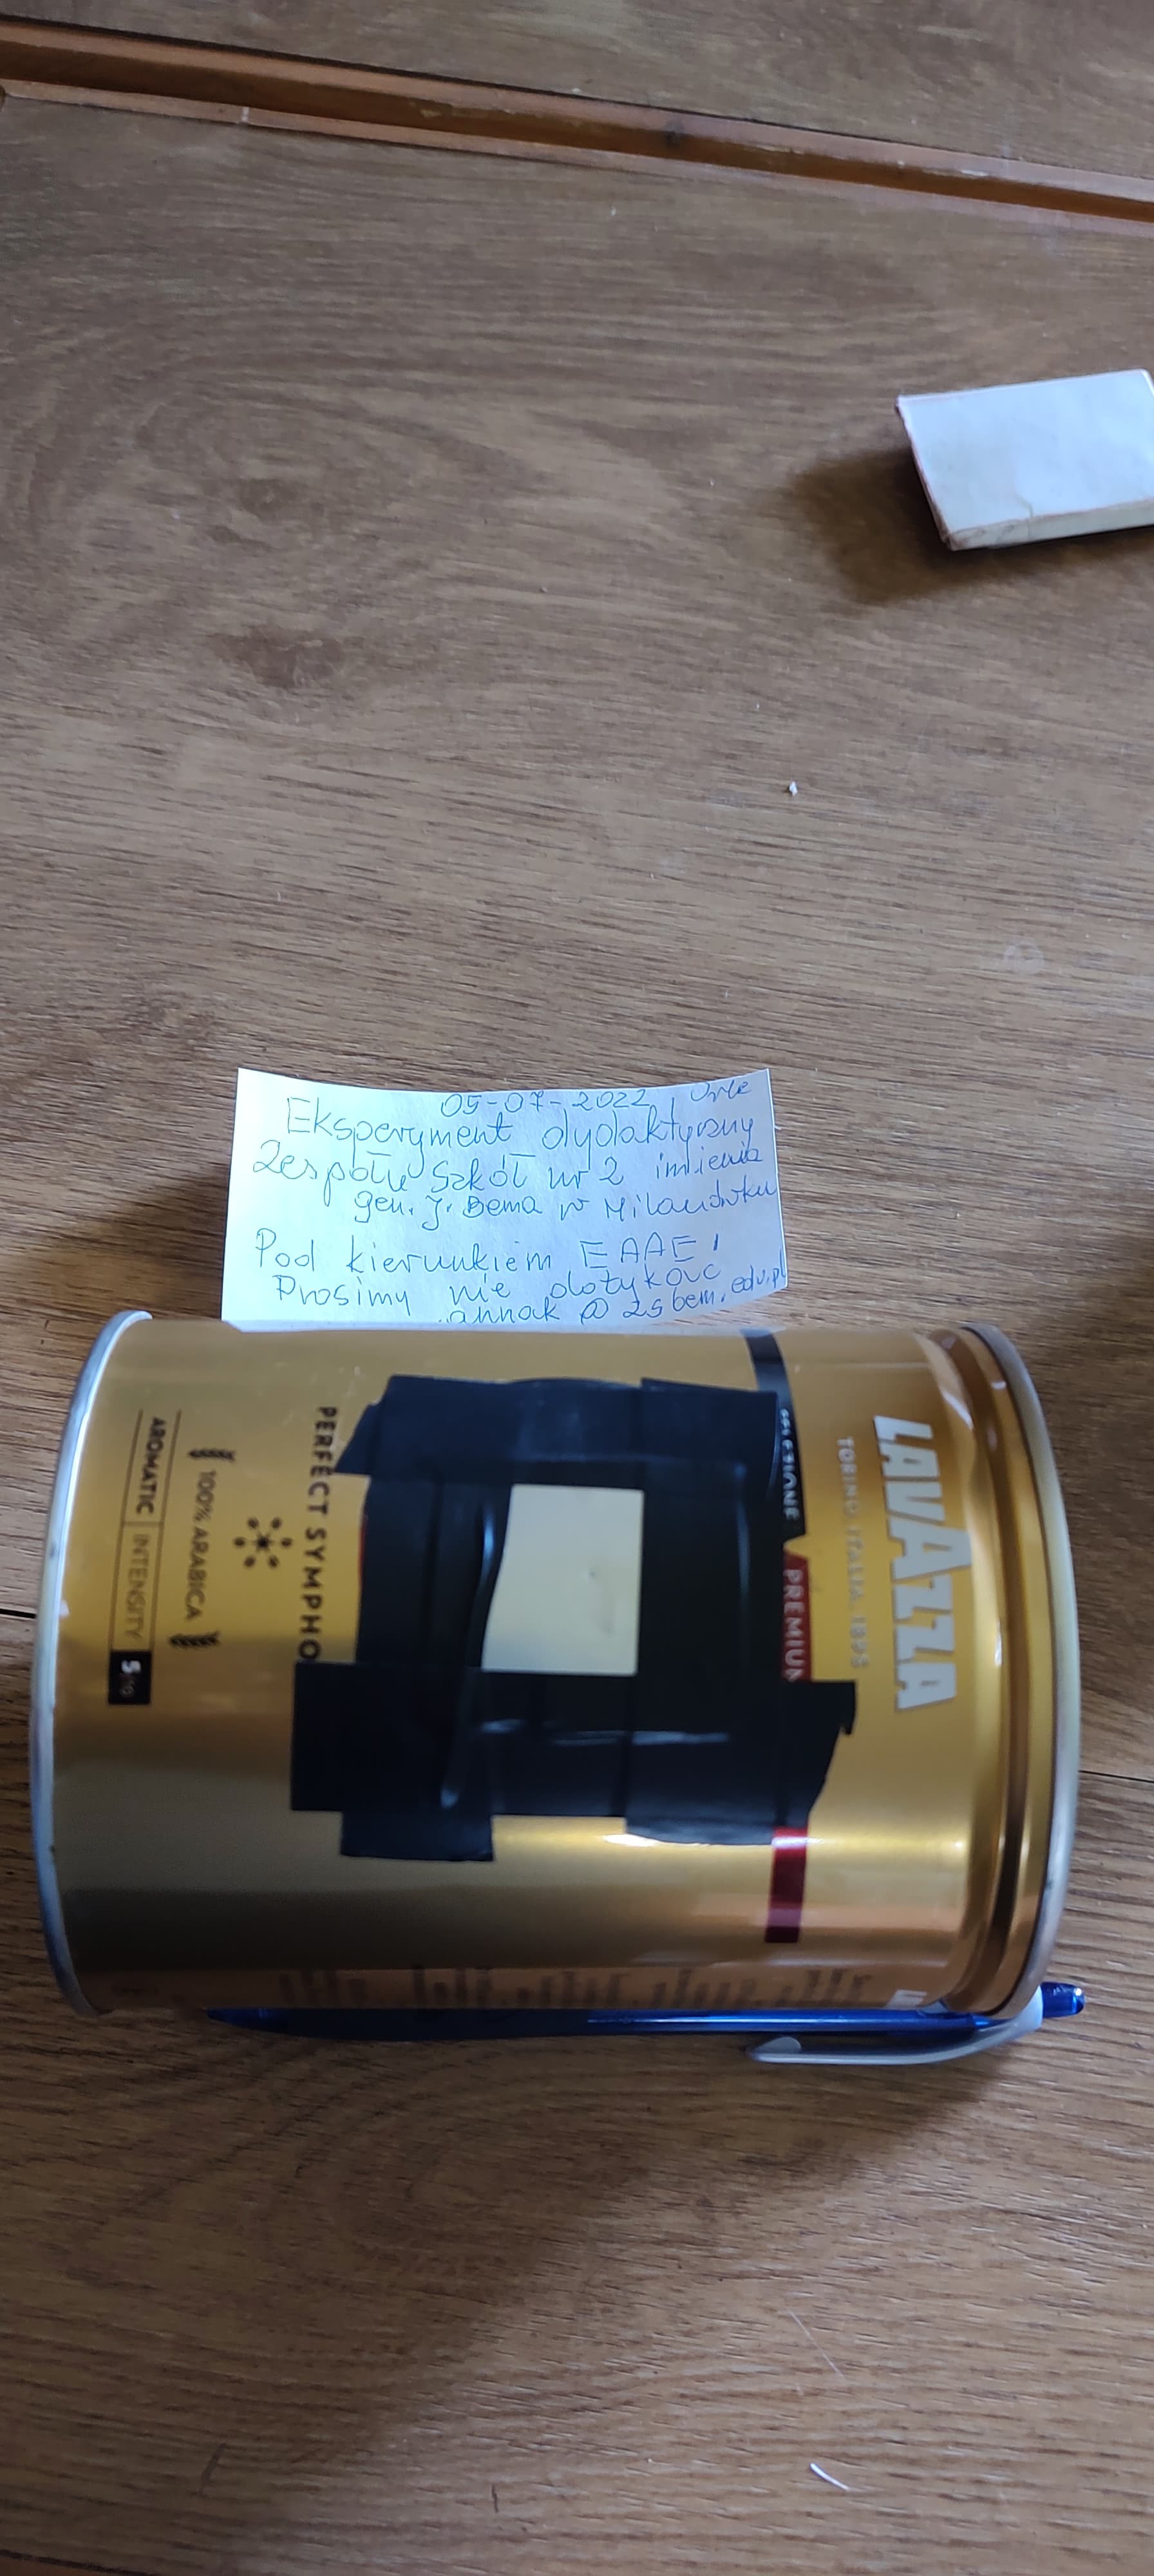 05-07-2022, Orle
Eksperyment dydaktyczny
Zespołu Szkół nr 2 imienia
gen. J. Bema w Milanówku
Pod kierunkiem EAAE!
Prosimy nie dotykać
annak@zsbem.edu.pl
LAVAZZA
TORINO, ITALIA, 1895
SELEZIONE
PREMIUM
PERFECT SYMPHO
100% ARABICA
AROMATIC INTENSITY 5/10